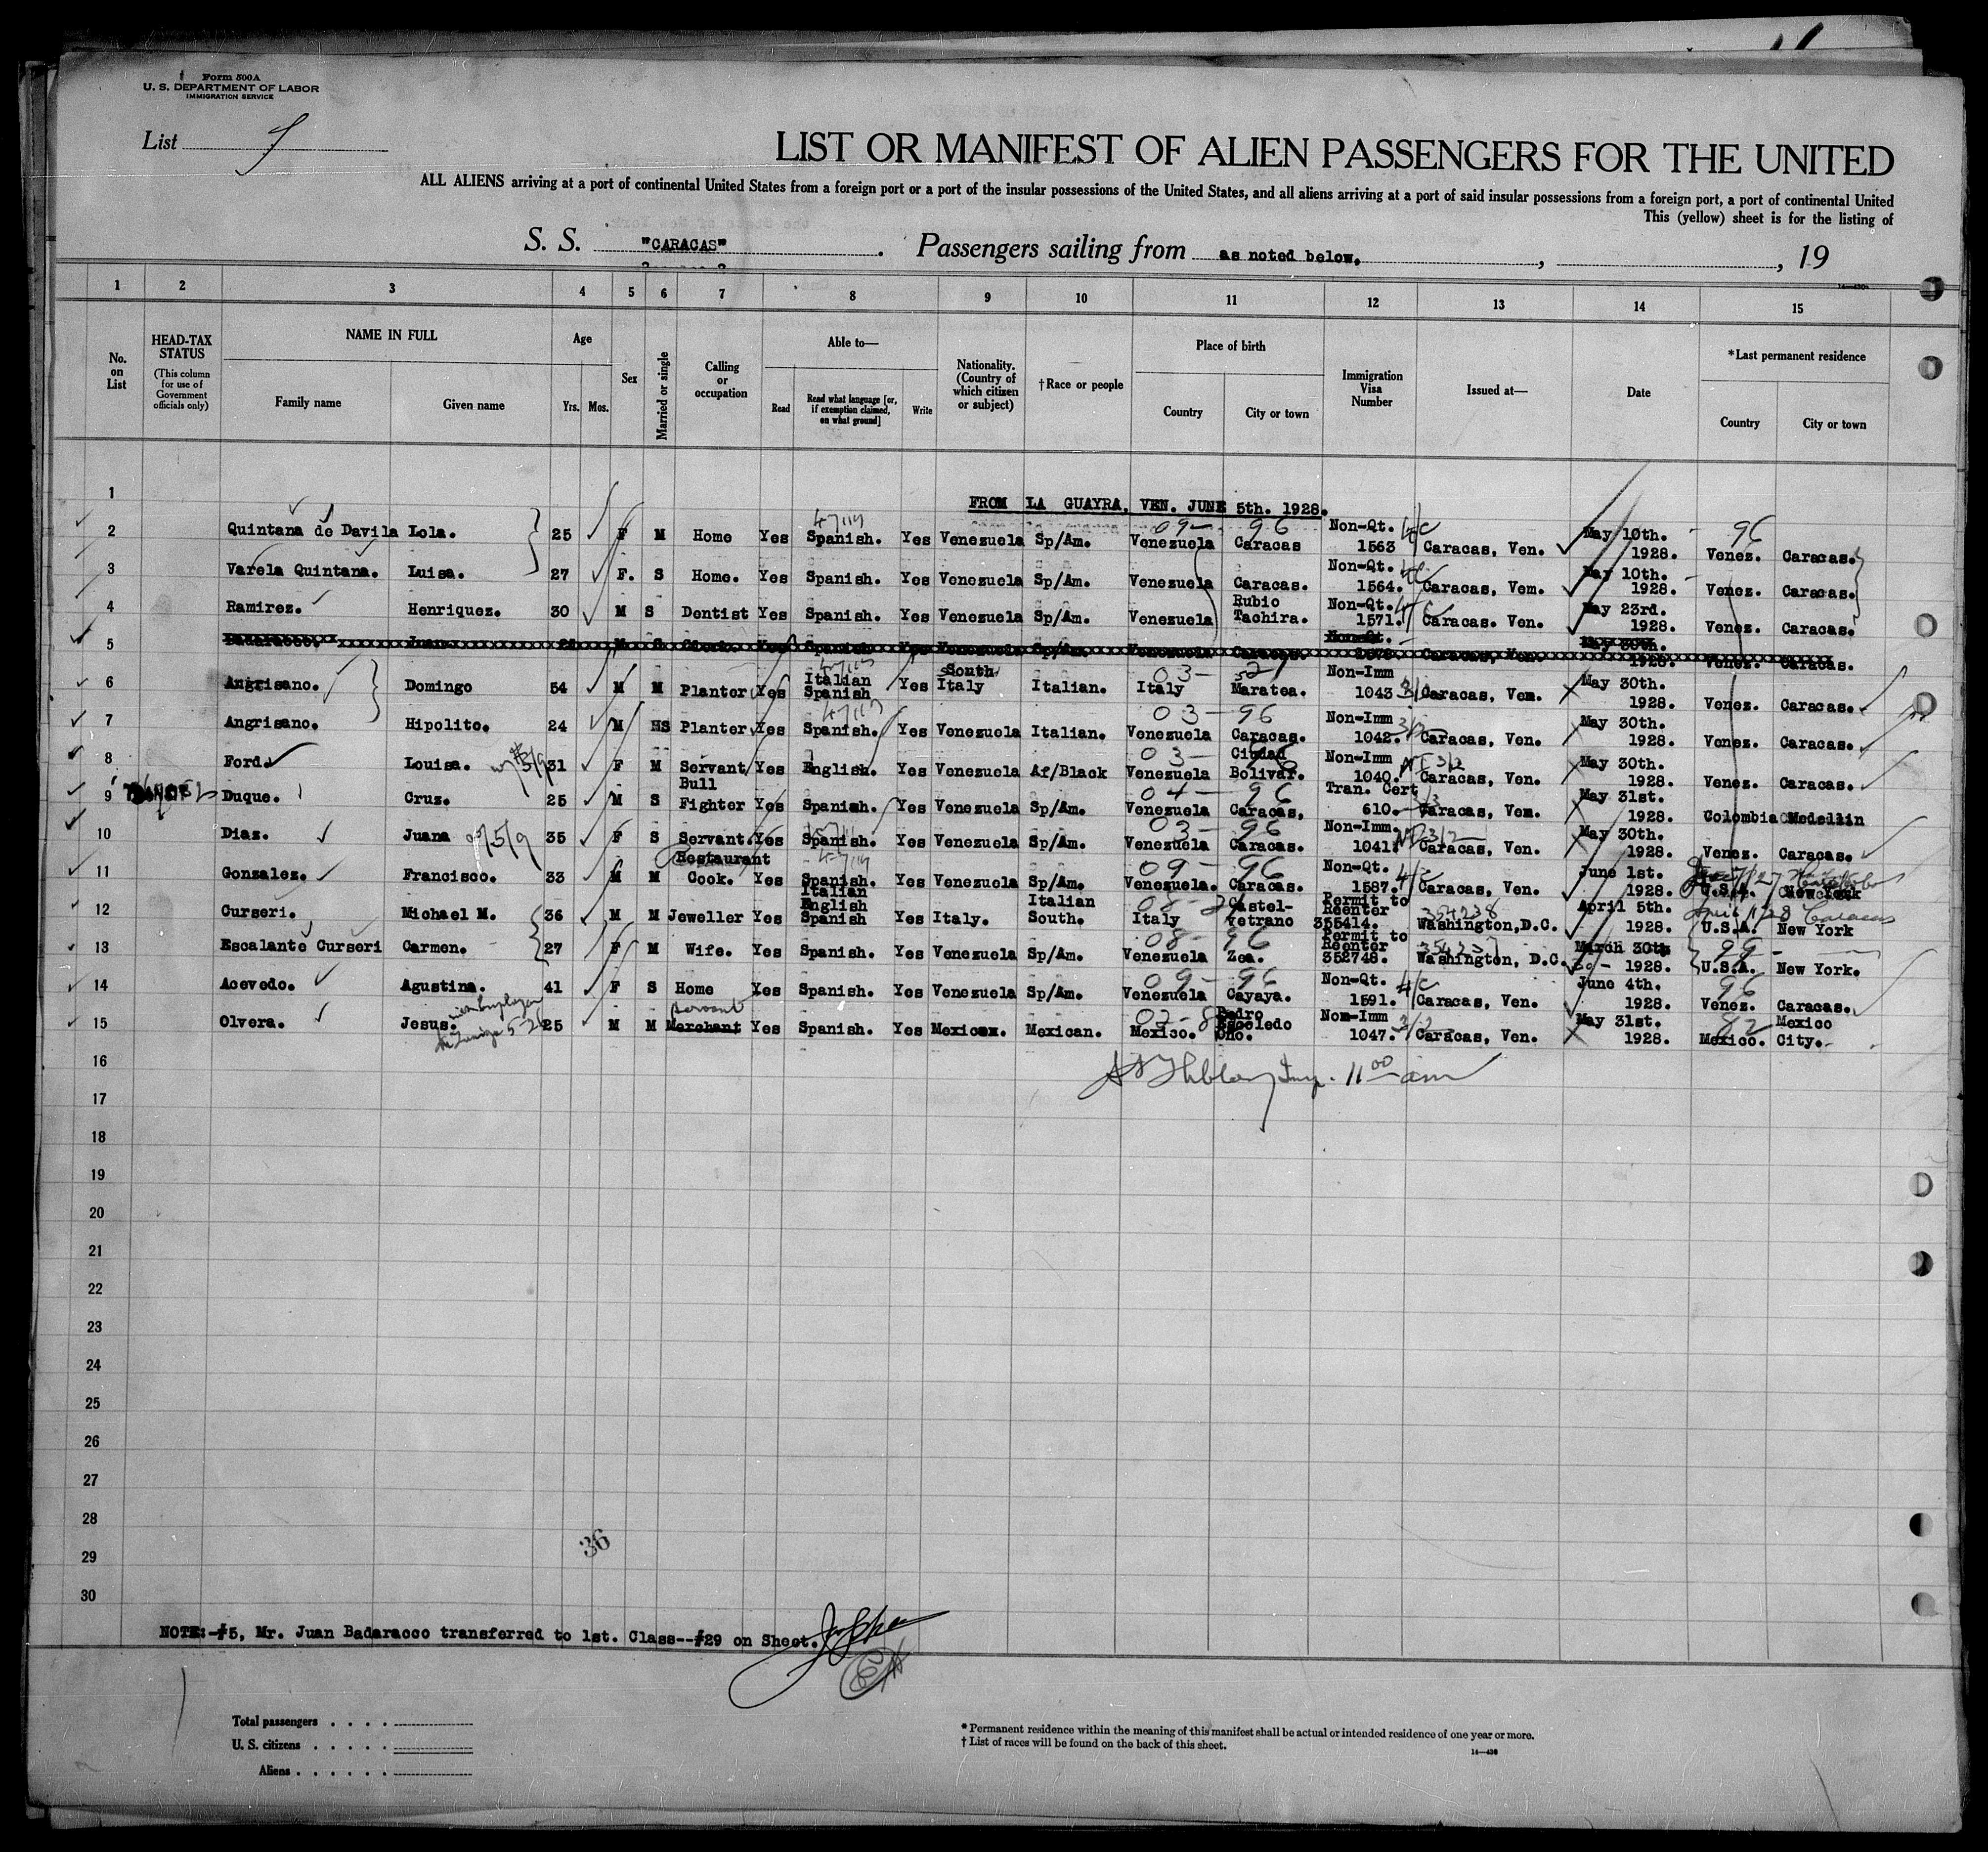 Form 500A
U. S. DEPARTMENT OF LABOR
IMMIGRATION SERVICE
List
LIST OR MANIFEST OF ALIEN PASSENGERS FOR THE UNITED
ALL ALIENS arriving at a port of continental United States from a foreign port or a port of the insular possessions of the United States, and all aliens arriving at a port of said insular possessions from a foreign port, a port of continental United
This (yellow) sheet is for the listing of
S. S. "CARACAS". Passengers sailing from as noted below, , 19
1 2 3 4 5 6 7 8 9 10 11 12 13 14 15
No. on List
HEAD-TAX STATUS (This column for use of Government officials only)
NAME IN FULL Family name Given name
Age Yrs. Mos.
Sex
Married or single
Calling or occupation
Able to— Read Read what language [or, if exemption claimed, on what ground] Write
Nationality. (Country of which citizen or subject)
†Race or people
Place of birth Country City or town
Immigration Visa Number
Issued at—
Date
*Last permanent residence Country City or town
1 FROM LA GUAYRA, VEN. JUNE 5th. 1928.
2 Quintana de Davila Lola. 25 F M Home Yes Spanish. Yes Venezuela Sp/Am. Venezuela Caracas Non-Qt. 1563 Caracas, Ven. May 10th. 1928. Venez. Caracas.
3 Varela Quintana. Luisa. 27 F. S Home. Yes Spanish. Yes Venezuela Sp/Am. Venezuela Caracas. Non-Qt. 1564. Caracas, Vem. May 10th. 1928. Venez. Caracas.
4 Ramirez. Henriquez. 30 M S Dentist Yes Spanish. Yes Venezuela Sp/Am. Venezuela Rubio Tachira. Non-Qt. 1571. Caracas. Ven. May 23rd. 1928. Venez. Caracas.
5 Badaracco. Juan. M S Clerk. Yes Spanish Yes Venezuela Sp/Am. Venezuela Caracas. Non-Qt. Caracas, Ven. May 30th. 1928. Venez. Caracas.
6 Angrisano. Domingo 54 M M Planter Yes Italian Spanish Yes South Italy Italian. Italy Maratea. Non-Imm 1043 Caracas, Vem. May 30th. 1928. Venez. Caracas.
7 Angrisano. Hipolito. 24 M HS Planter Yes Spanish. Yes Venezuela Italian. Venezuela Caracas. Non-Imm 1042. Caracas, Ven. May 30th. 1928. Venez. Caracas.
8 Ford. Louisa. 31 F M Servant Yes English. Yes Venezuela Af/Black Venezuela Ciudad Bolivar. Non-Imm 1040. Caracas, Ven. May 30th. 1928. Venez. Caracas.
9 Duque. Cruz. 25 M S Bull Fighter Yes Spanish. Yes Venezuela Sp/Am. Venezuela Caracas, Tran. Cert 610. Caracas, Vem. May 31st. 1928. Colombia Medellin
10 Diaz. Juana 35 F S Servant. Yes Spanish. Yes Venezuela Sp/Am. Venezuela Caracas. Non-Imm. 1041. Caracas, Ven. May 30th. 1928. Venez. Caracas.
11 Gonzalez. Francisco. 33 M M Restaurant Cook. Yes Spanish. Yes Venezuela Sp/Am. Venezuela. Caracas. Non-Qt. 1587. Caracas, Ven. June 1st. 1928. U.S.A. New York
12 Curseri. Michael M. 36 M M Jeweller Yes Italian English Spanish Yes Italy. Italian South. Italy Castel-vetrano Permit to Reenter 355414. 354238 Washington, D.C. April 5th. 1928. U.S.A. New York
13 Escalante Curseri Carmen. 27 F M Wife. Yes Spanish. Yes Venezuela Sp/Am. Venezuela Zea. Permit to Reenter 352748. 354237 Washington, D.C. March 30th 1928. U.S.A. New York.
14 Acevedo. Agustina. 41 F S Home Yes Spanish. Yes Venezuela Sp/Am. Venezuela Cayaya. Non-Qt. 1591. Caracas, Ven. June 4th. 1928. Venez. Caracas.
15 Olvera. Jesus. 25 M M Merchant Servant Yes Spanish. Yes Mexican. Mexican. Mexico. Pedro Escoledo Gno. Non-Imm 1047. Caracas, Ven. May 31st. 1928. Mexico. Mexico City.
16 11 00 am
17
18
19
20
21
22
23
24
25
26
27
28
36
29
30
NOTE:-#5, Mr. Juan Badaracco transferred to 1st. Class--#29 on Sheet.
Total passengers . . . .
U. S. citizens . . . . .
Aliens . . . . . .
* Permanent residence within the meaning of this manifest shall be actual or intended residence of one year or more.
† List of races will be found on the back of this sheet.
14—430